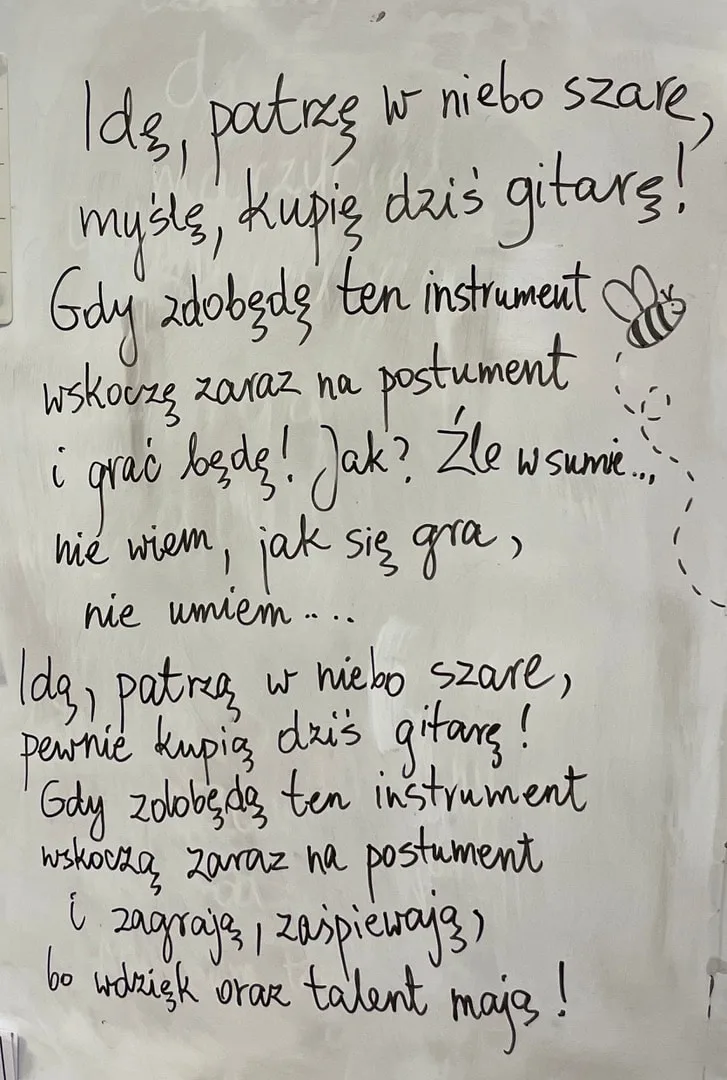 Idę, patrzę w niebo szare,
myślę, kupię dziś gitarę!
Gdy zdobędę ten instrument
wskoczę zaraz na postument
i grać będę! Jak? Źle w sumie...
nie wiem, jak się gra,
nie umiem....
Idą, patrzą w niebo szare,
pewnie kupią dziś gitarę!
Gdy zdobędą ten instrument
wskoczą zaraz na postument
i zagrają, zaśpiewają,
bo wdzięk oraz talent mają!